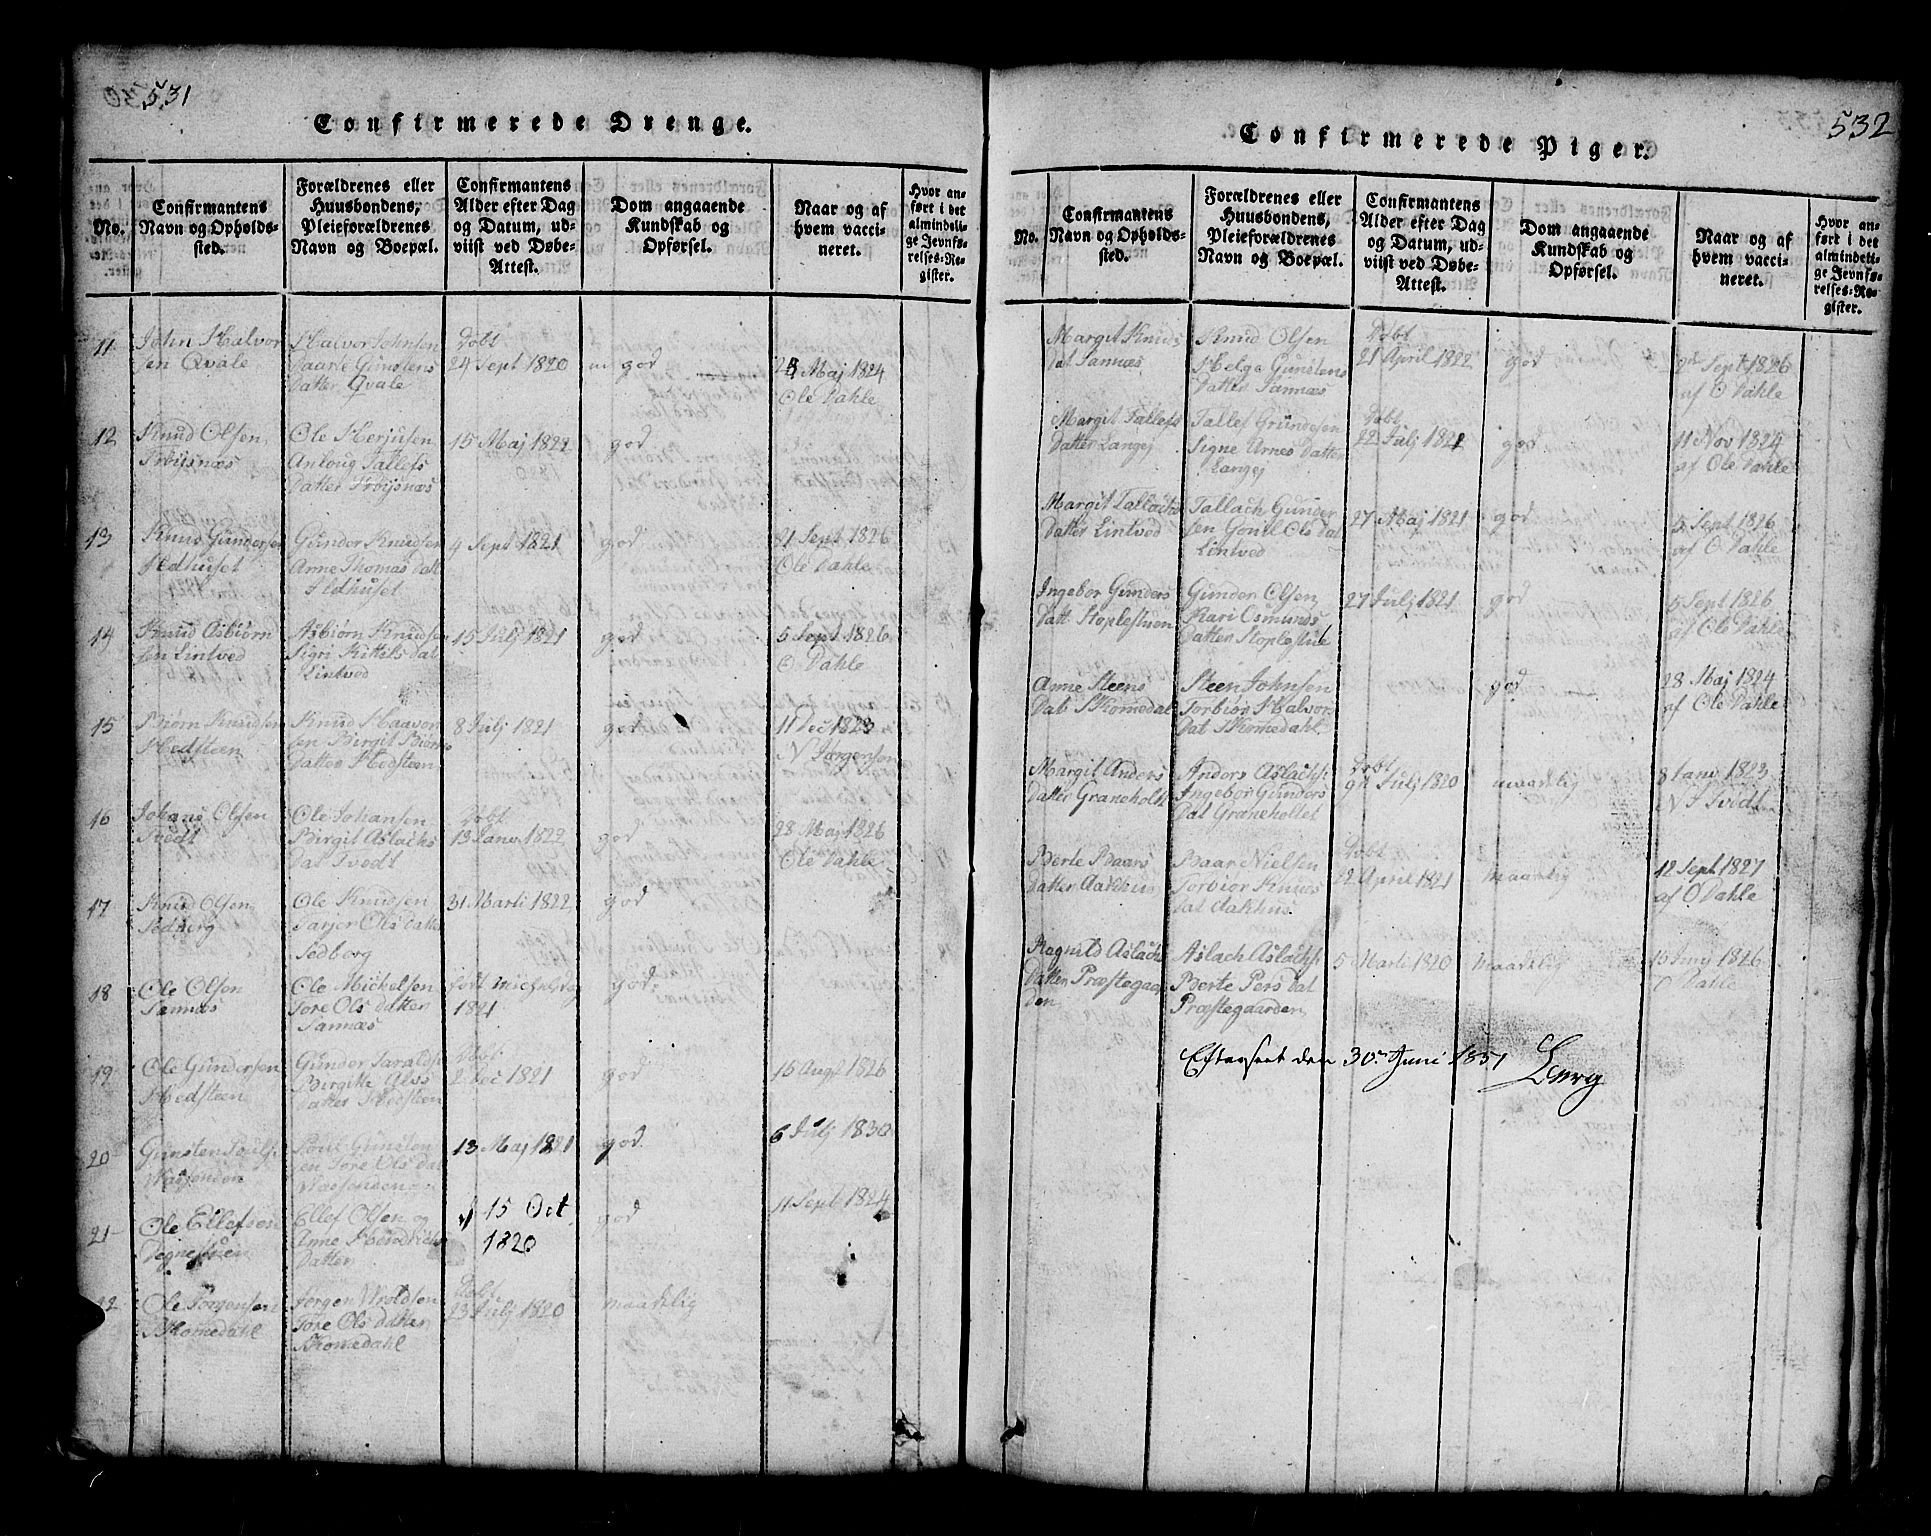 531
Confirmerede Drenge.
No.
Confirmantens
Navn og Opholds-
sted.
Forældrenes eller
Huusbondens,
Pleieforældrenes
Navn og Boepæl.
Confirmantens
Alder efter Dag
og Datum, ud-
viist ved Døbe-
Attest.
Dom angaaende
Kundskab og
Opførsel.
Naar og af
hvem vacci-
neret.
Hvor an-
ført i det
almindeli-
ge Jevnfø-
relses-Re-
gister.
11
John Halvor
sen Qvale
Halvor Johnsen
Gunstens
Datter Qvale
Døbt
24 Sept 1820
god
Maj 1824
Ole Dahle
12
Knud Olsen
Frøijsnæs
Ole Herjusen
Anloug Tallefs
Datter Frøijsnæs
15 Maj 1822
god
13
Knud Gundersen
Ildhuset
Gunder Knudsen
Anne Thomas Datt
Ildhuset
4 Sept 1821
god
21 Sept 1826
Ole Dahle
14
Knud Asbiørn
sen Lintved
Asbiørn Knudsen
Sigri Kittels dat
Lintved
15 Julj 1821
god
5 Sept 1826
O Dahle
15
Biørn Knudsen
Hedsteen
Knud Haavor
sen Birgit Biørns
Datter Hedsteen
8 Julj 1821
god
11 Dec 1823
N Jørgensen
16
Johans Olsen
Tvedt
Ole Johansen
Birgit Aslachs
Dat Tvedt
Døbt
13 Janv 1822
god
28 Maj 1826
Ole Dahle
17
Knud Olsen
Ole Knudsen
Tarjer Ols datter
Sedborg
31 Marti 1822
god
18
Ole Olsen
Sannæs
Ole Mickelsen
Tore Ols datter
Sannæs
født michelsdag
1821
god
19
Ole Gundersen
Hedsteen
Gunder Taralds
Birgith
Datter Hedsteen
Døbt
2 Dec 1821
god
16 Augt 1826
20
Gunsten
Gunsten
sen Tore Ols dat
13 Maj 1821
god
6 Julj 1830
21
Ole Ellefsen
Ellef Olsen og
Anne Hendrichs
Datter
15 Oct
1820
god
11 Sept 1824
22
Ole Jørgensen
Skomedahl
Jørgen
Tore Ols Datter
Skomedahl
Døbt
23 Julj 1820
maadelig
532
Confirmerede Piger.
No.
Confirmantens
Navn og Opholds-
sted.
Forældrenes eller
Huusbondens,
Pleieforældrenes
Navn og Boepæl.
Confirmantens
Alder efter Dag
og Datum, ud-
viist ved Døbe-
Attest.
Dom angaaende
Kundskab og
Opførsel.
Naar og af
hvem vacci-
neret.
Hvor an-
ført i det
almindeli-
ge Jevnfø-
relses-Re-
gister.
Margit Knuds
dat Sannæs
Knud Olsen
Helge Gunstens
Datter Sannæs
Døbt
21 April 1822
god
Sept 1826
af O Dahle
Margit Tallefs
Datter Langej
Tallef Gundersen
Signe Arnes Datter
Langej
Døbt
22 Julj 1821
god
11 Nov 1824
af Ole Dahle
Margit Tallachs
Datter Lintved
Tallach Gunder
sen Gonil Ols dat
Lintved
27 Maj 1821
god
5 Sept 1826
af O Dahle
Ingebor Gunders
Datt Stoplestuen
Gunder Olsen
Kari Osmunds
Datter Stoplestue
27 Julj 1821
god
5 Sept 1826
af Ole Dahle
Anne Steens
Dat Skomedal
Steen Johnsen
Torbiør Halvor
Dat Skomedahl
god
28 Maj 1824
af Ole Dahle
Margit Anders
Datter Graneholt
Anders Aslachs
Ingebor Gunders
Dat Graneholtet
Døbt
9 Julj 1820
maadelig
8 Janv 1823
N J Tvedt
Berte Baars
Datter Aakhus
Baar Nielsen
Torbiør Knuds
Dat Aakhus
Døbt
22 April 1821
maadelig
12 Sept 1827
af O Dahle
Ragnild Aslachs
Datter Præstegaar
den
Aslach Aslachs
Berte Pers dat
Præstegaarden
5 Marti 1820
maadelig
15 Junj 1826
O Dahle
Efterseet den 30 Juni 1851
Berg